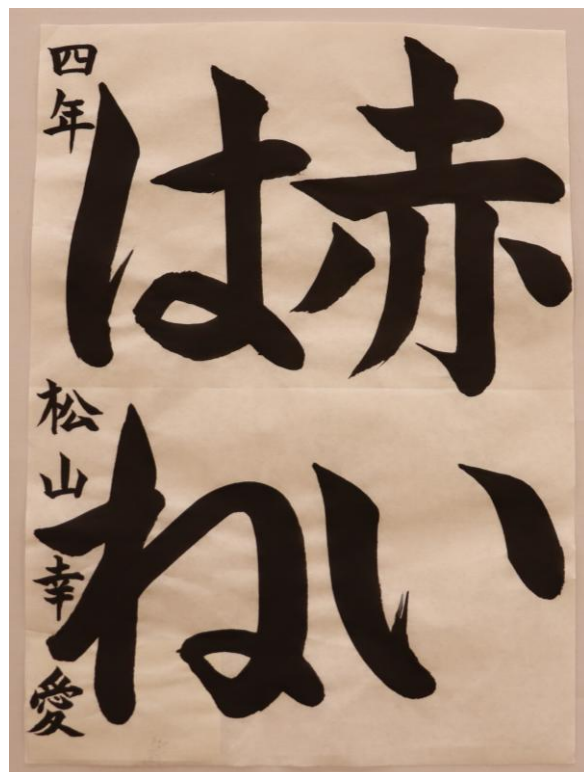 赤い
はね
四年 松山幸愛